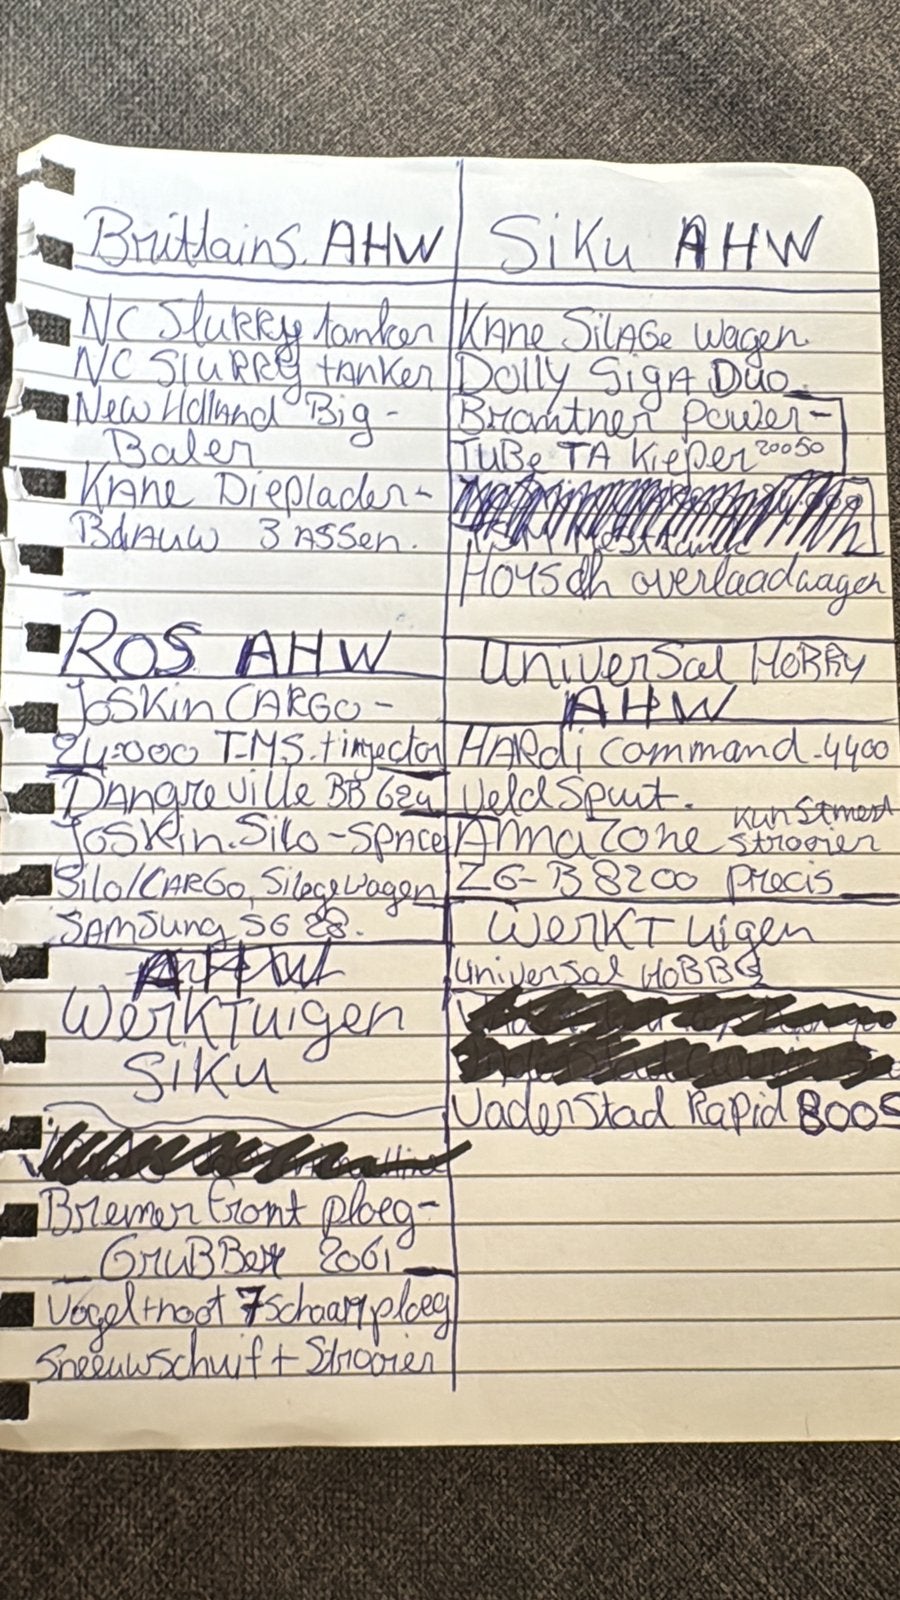 Brittains. AHW
NC Slurry tanker
NC SluRRy tanker
New Holland Big-
Baler
Kane Dieplader-
Blauw 3 Assen.
Ros AHW
Joskin CARGO-
24.000 T-M.S. + injector
Dangreville BB 62u
Joskin. Silo-Space
Silo/CARGO, Silagewagen
SAMSung SG 28.
AHW
WerkTuigen
SiKu
Bremer front ploeg-
GruBBer 2061
Vogel+noot 7schaar ploeg
Sneeuwschuif + Strooier
SiKu AHW
Kane Silage wagen
Dolly Siga Duo
Brantner Power-
TuBe TA Kieper 20050
overlaadwagen
Universal HoBBY
AHW
HARdi Command-4400
VeldSpuit.
Amazone kunstmest
strooier
ZG-B 8200 precis
WerkTuigen
Universal HoBBY
VaderStad Rapid 800S